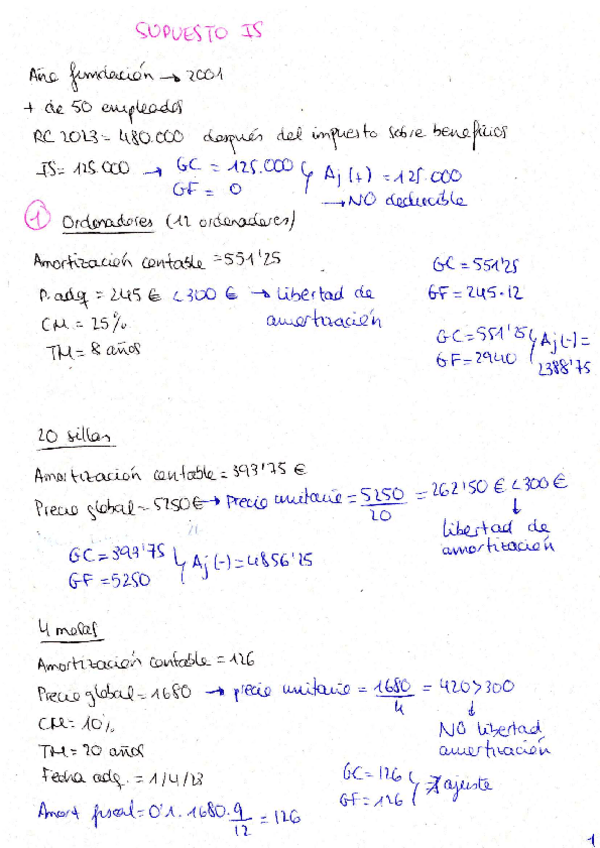 SUPUESTO IS
Año fundación → 2001
+ de 50 empleados
RC 2023 = 480.000 después del impuesto sobre beneficios
IS = 125.000 → GC = 125.000 Aj (+) = 125.000
GF = 0 → NO deducible
1 Ordenadores (12 ordenadores)
Amortización contable = 551'25
GC = 551'25
P. adq = 245 € < 300 € → libertad de amortización
GF = 245·12
CM = 25%
TM = 8 años
GC = 551'25 Aj (-) = 2388'75
GF = 2940
20 sillas
Amortización contable = 393'75 €
Precio global = 5250 € → Precio unitario = 5250/20 = 262'50 € < 300 €
↓
libertad de amortización
GC = 393'75 Aj (-) = 4856'25
GF = 5250
4 mesas
Amortización contable = 126
Precio global = 1680 → precio unitario = 1680/4 = 420 > 300
↓
NO libertad amortización
CM = 10%
TM = 20 años
Fecha adq. = 1/4/23
GC = 126 ∄ ajuste
GF = 126
Amort fiscal = 0'1 · 1680 · 9/12 = 126
1